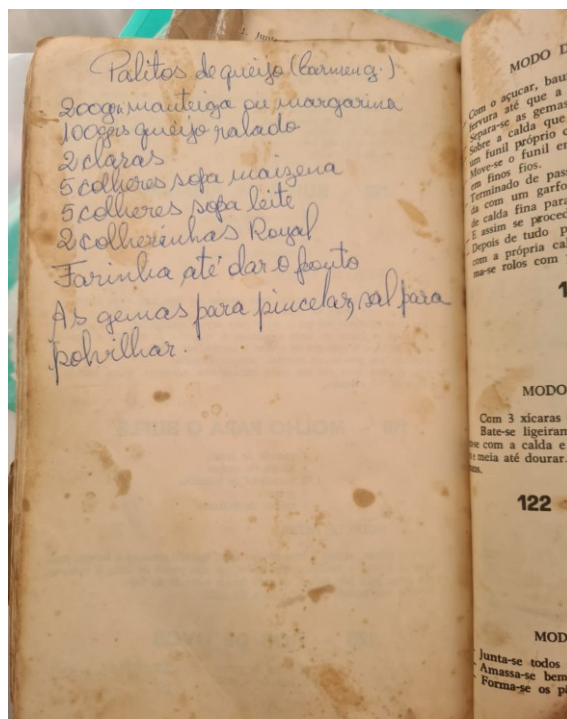 Palitos de queijo (Carmen g.)
200grs manteiga ou margarina
100grs queijo ralado
2 claras
5 colheres sopa maizena
5 colheres sopa leite
2 colherinhas Royal
Farinha até dar o ponto
As gemas para pincelar, sal para
polvilhar.
MODO D
Com o açucar, bau
fervura até que a
Separa-se as gemas
Sobre a calda que
um funil próprio c
Move-se o funil em
em finos fios.
Terminado de pass
da com um garfo
de calda fina para
E assim se proced
Depois de tudo p
com a própria cal
ma-se rolos com
1
MODO
Com 3 xicaras
Bate-se ligeiram
se com a calda e
e meia até dourar.
122
MOD
Junta-se todos
Amassa-se bem
Forma-se os p